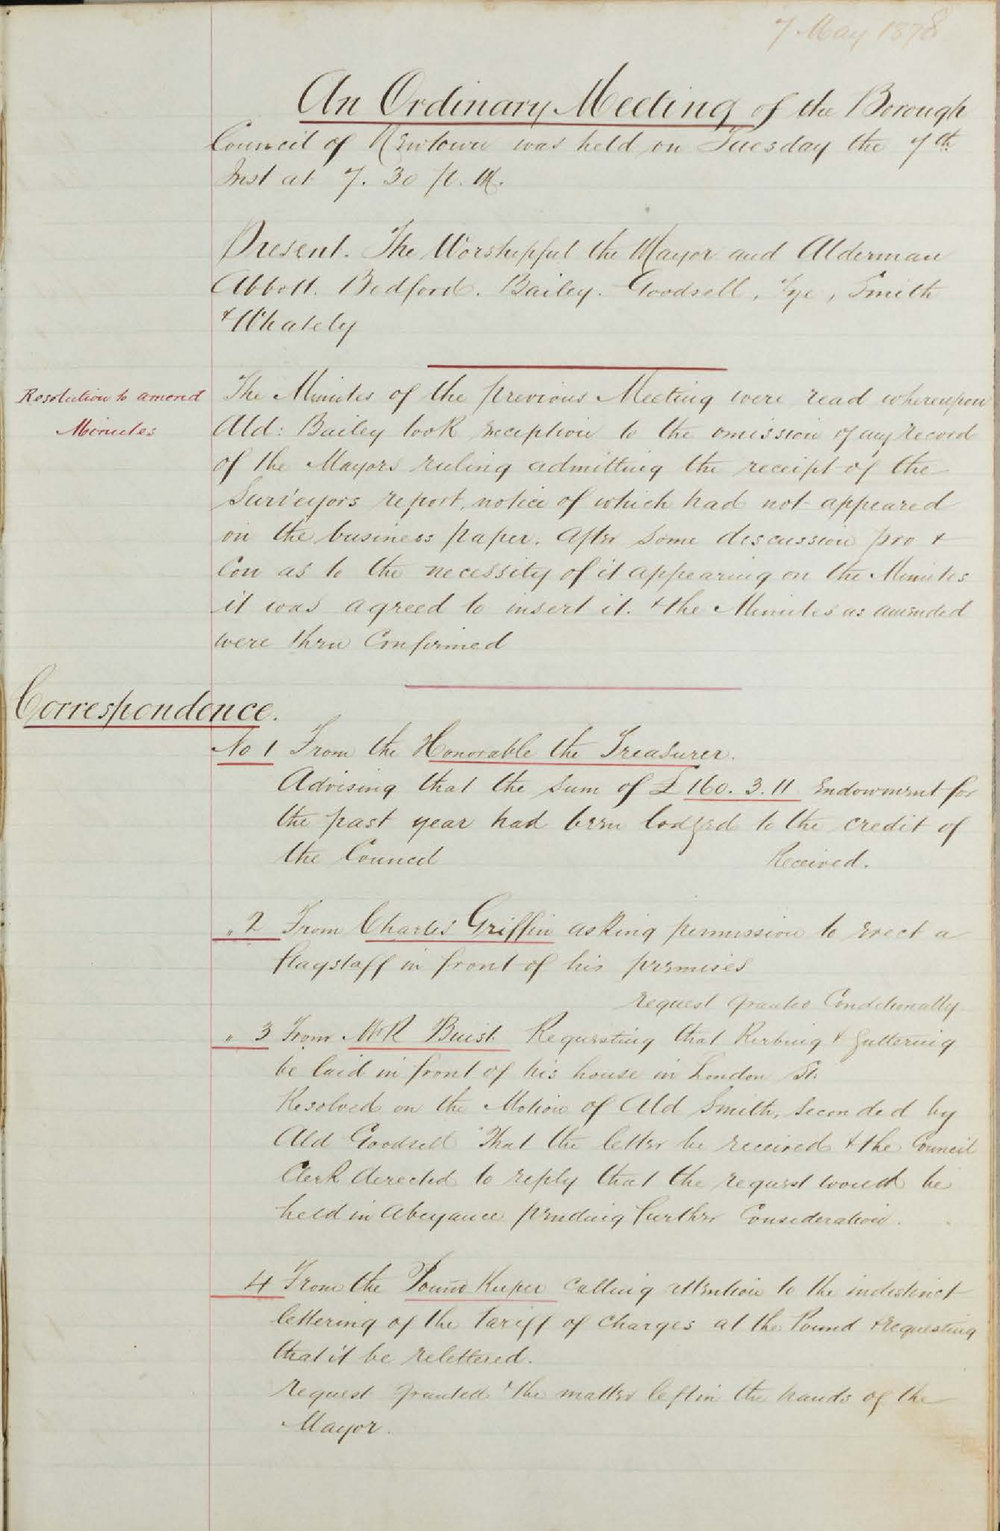 7 May 1878
An Ordinary Meeting of the Borough
Council of Newtown was held on Tuesday the 7th
Inst at 7.30 p.M.
Present. The Worshipful the Mayor and Alderman
Abbott. Bedford. Bailey. Goodsell, Tye, Smith
& Whately
Resolution to amend
Minutes
The Minutes of the previous Meeting were read whereupon
Ald: Bailey took exception to the omission of any record
of the Mayors ruling admitting the receipt of the
Surveyors report, notice of which had not appeared
on the business paper. After some discussion pro &
Con as to the necessity of it appearing on the Minutes
it was agreed to insert it. & the Minutes as amended
were then Confirmed
Correspondence.
No 1 From the Honorable the Treasurer.
Advising that the Sum of £160.3.11 Endowment for
the past year had been lodged to the credit of
the Council Received.
" 2 From Charles Griffin asking permission to erect a
flagstaff in front of his premises
request granted Conditionally
" 3 From Mr R Buist Requesting that Kerbing & guttering
be laid in front of his house in London St.
Resolved on the Motion of Ald Smith, seconded by
Ald Goodsell "That the letter be received & the Council
Clerk directed to reply that the request would be
held in Abeyance pending further Consideration.
4 From the Pound Keeper calling attention to the indistinct
lettering of the tariff of charges at the Pound & requesting
that it be relettered.
request granted & the matter left in the hands of the
Mayor.